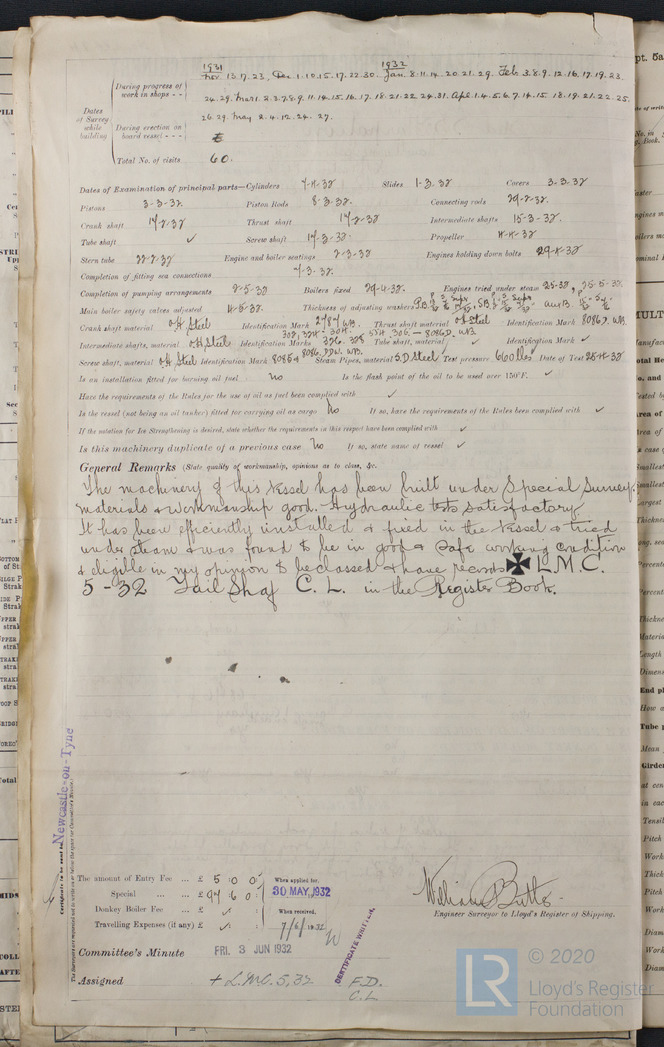 1931 1932
During progress of work in shops - - Nov. 13.17.23, Dec. 1.10.15.17.22.30. Jan. 8.11.14.20.21.29. Feb. 3.8.9.12.16.17.19.23.
24.29. Mar 1.2.3.7.8.9.11.14.15.16.17.18.21.22.24.31. Apl. 1.4.5.6.7.14.15.18.19.21.22.25.
Dates of Survey while building
During erection on board vessel - - - 26.29. May 2.4.12.24.27.
Total No. of visits 60.
Dates of Examination of principal parts—Cylinders 7-4-32 Slides 1-3-32 Covers 3-3-32
Pistons 3-3-32 Piston Rods 8-3-32. Connecting rods 29-2-32.
Crank shaft 17-2-32 Thrust shaft 17-2-32 Intermediate shafts 15-3-32.
Tube shaft ✓ Screw shaft 17-3-32. Propeller 4-4-32
Stern tube 22-2-32 Engine and boiler seatings 2-3-32 Engines holding down bolts 29-4-32
Completion of fitting sea connections 7-3-32.
Completion of pumping arrangements 2-5-32 Boilers fixed 29-4-32. Engines tried under steam
Main boiler safety valves adjusted 4-5-32. Thickness of adjusting washers
Crank shaft material O.H. Steel Identification Mark 2787 W.B. Thrust shaft material O.H. Steel Identification Mark 8086 D. W.B.
Intermediate shafts, material O.H. Steel Identification Marks Tube shaft, material Identification Mark ✓
Screw shaft, material O.H. Steel Identification Mark Steam Pipes, material S.D Steel Test pressure 600 lbs Date of Test 25-4-32
Is an installation fitted for burning oil fuel No Is the flash point of the oil to be used over 150°F. ✓
Have the requirements of the Rules for the use of oil as fuel been complied with ✓
Is the vessel (not being an oil tanker) fitted for carrying oil as cargo No If so, have the requirements of the Rules been complied with ✓
If the notation for Ice Strengthening is desired, state whether the requirements in this respect have been complied with ✓
Is this machinery duplicate of a previous case No If so, state name of vessel ✓
General Remarks (State quality of workmanship, opinions as to class, &c.
The machinery of this Vessel has been built under Special Survey.
materials & workmanship good. Hydraulic tests satisfactory.
It has been efficiently installed & fixed in the Vessel & tried
under steam & was found to be in good & safe working condition
& eligible in my opinion to be classed & have records ✠ L.M.C.
5-32 Tail Shaf C. L. in the Register Book.
Newcastle-on-Tyne
Certificate to be sent to
The amount of Entry Fee ... £ 5 : 0 : 0
When applied for,
Special ... ... £ 94 : 6 : 0
30 MAY 1932
Donkey Boiler Fee ... £ ✓
When received,
Travelling Expenses (if any) £ ✓
7/6/1932
William Butts
Engineer Surveyor to Lloyd's Register of Shipping.
CERTIFICATE WRITTEN.
Committee's Minute FRI. 3 JUN 1932
Assigned + L.M.C. 5,32 F.D.
C.L
© 2020
LR
Lloyd's Register
Foundation